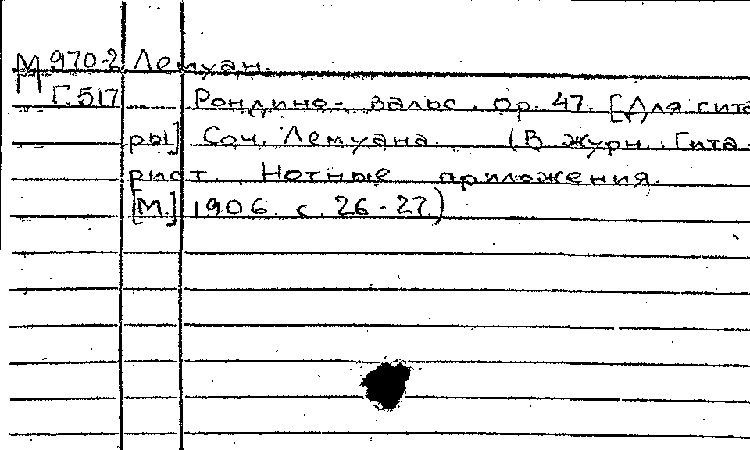 М 970-2 Лемуан.
Г.517 Рондино-вальс. Op. 47. [Для гита
ры] Соч. Лемуана. (В журн. Гита
рист. Нотные приложения.
[М.] 1906. с. 26-27.)